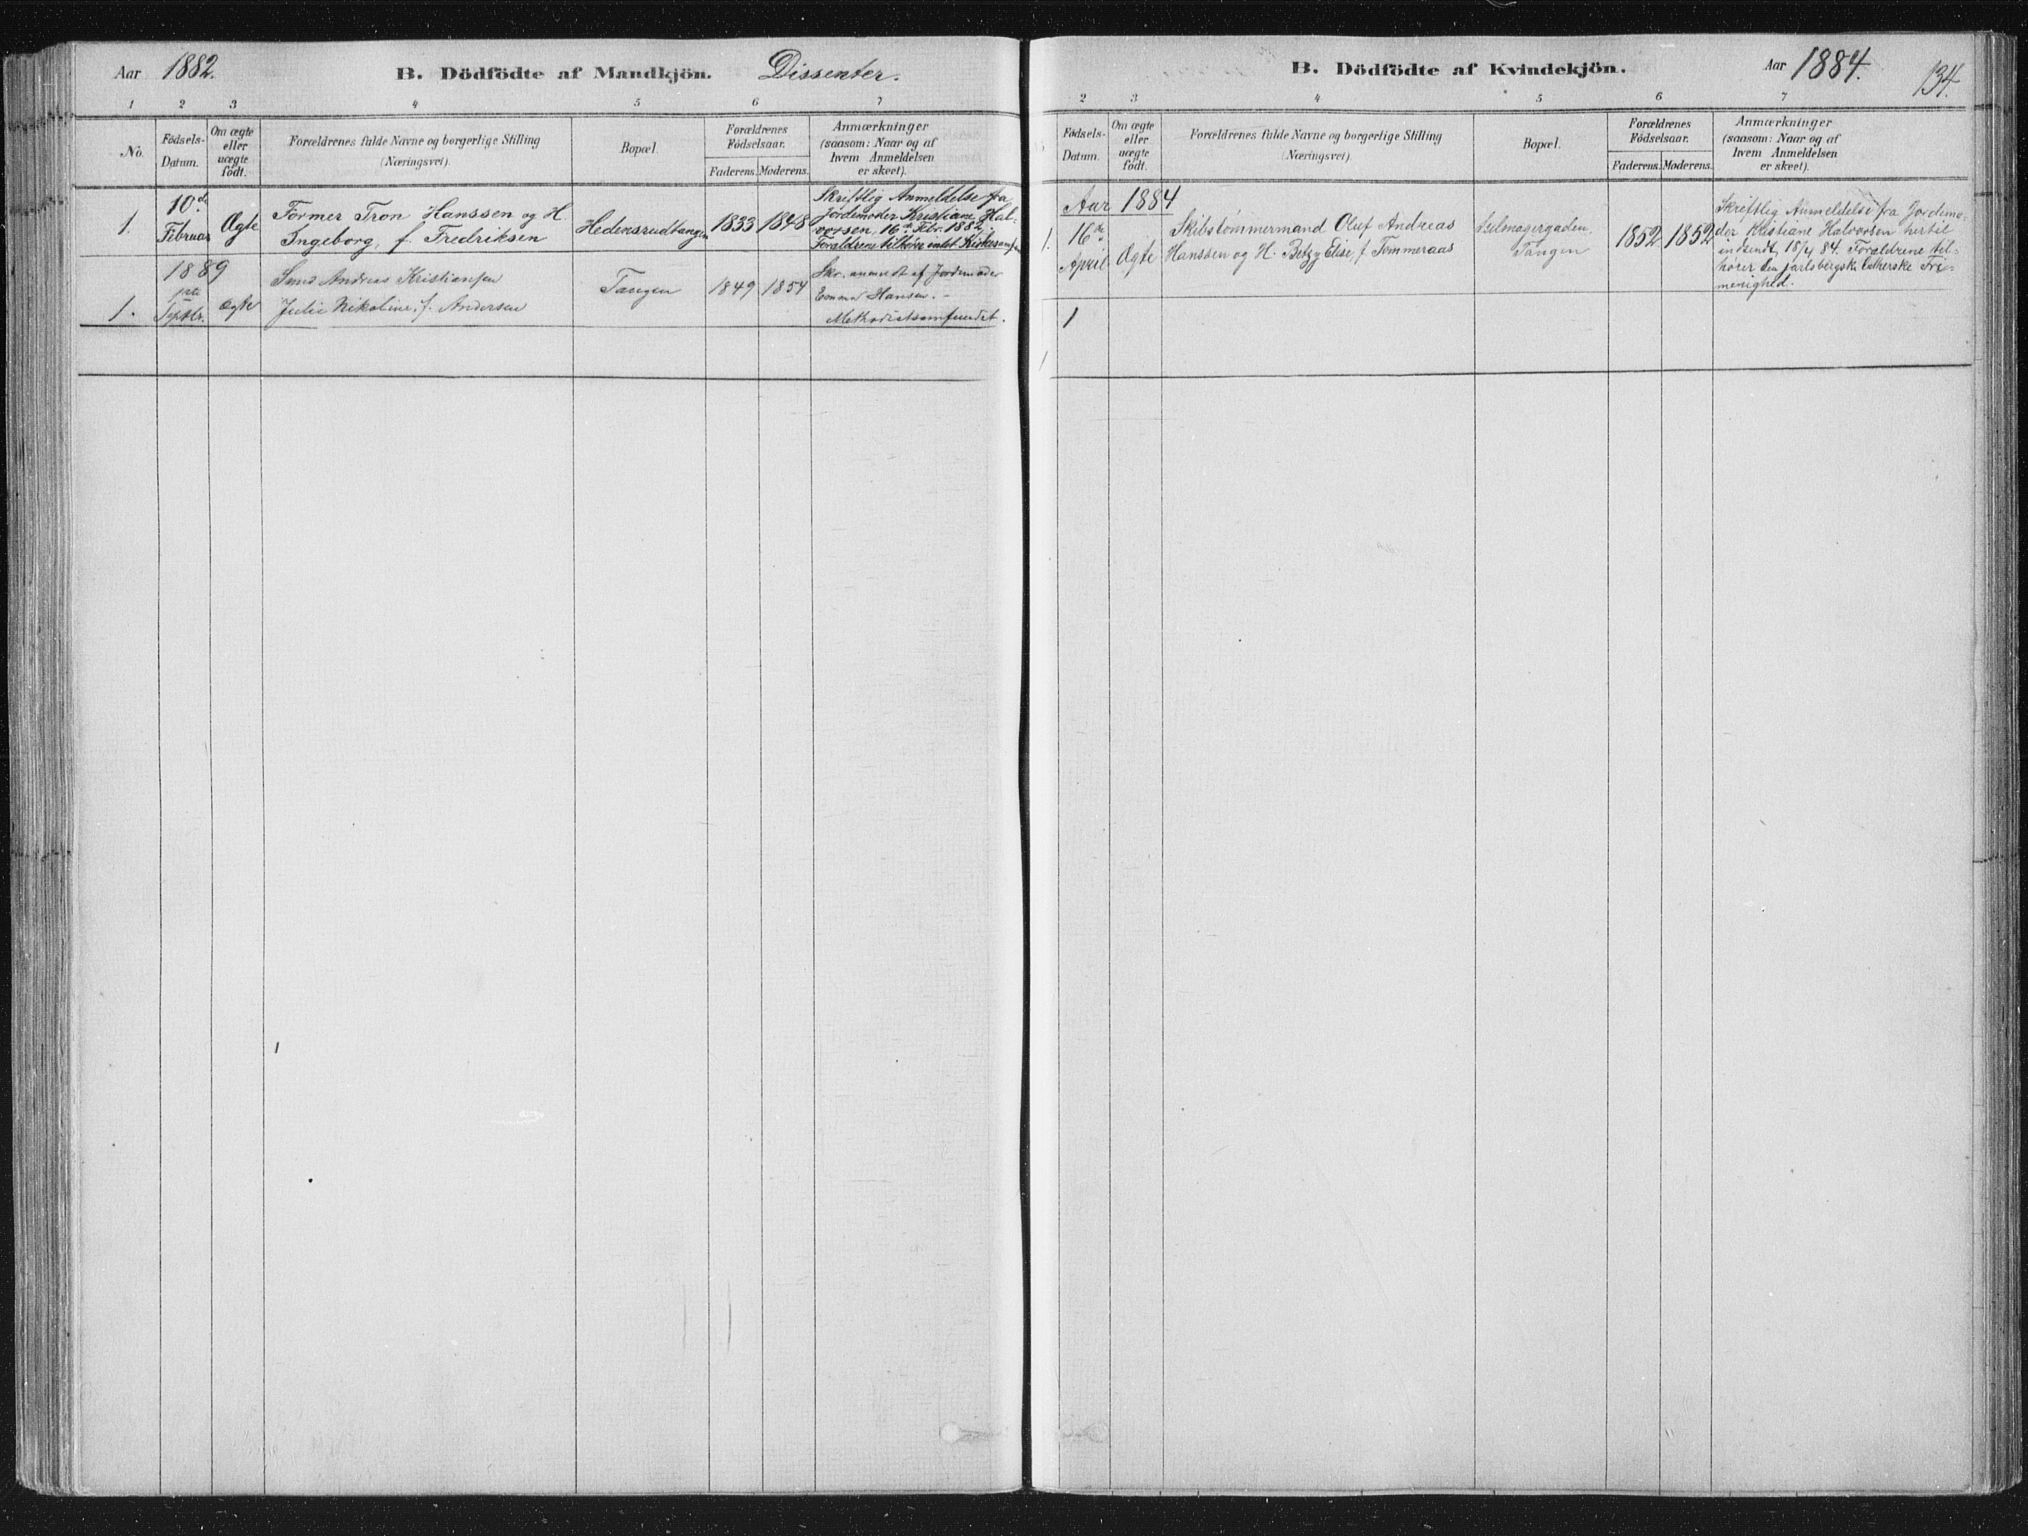 Aar 1882. B. Dödfödte af Mandkjön. Dissenter.
1 2 3 4 5 6 7
No. Födsels-Datum. Om ægte eller uægte födt. Forældrenes fulde Navne og borgerlige Stilling (Næringsvei). Bopæl. Forældrenes Födselsaar. Faderens. Moderens. Anmærkninger (saasom: Naar og af hvem Anmeldelsen er skeet).
1. 10de Februar Ægte
Former Tron Hanssen og H.
Ingeborg, f. Fredriksen
Hedensrudtangen 1833 1848
Skriftlig Anmeldelse fra
Jordemoder Kristiane Hal-
vorsen, 16de Febr. 1882,
Forældrene tilhöre intet Kirkesamf
1889
1. Septbr. ægte
Andreas Kristiansen
Julie Nikoline, f. Andersen
Tangen 1849 1854
Skr. anmeldt af Jordemoder
Emma Hansen. -
Methodistsamfundet.
B. Dödfödte af Kvindekjön. Aar 1884. 134.
2 3 4 5 6 7
Födsels-Datum. Om ægte eller uægte födt. Forældrenes fulde Navne og borgerlige Stilling (Næringsvei). Bopæl. Forældrenes Födselsaar. Faderens. Moderens. Anmærkninger (saasom: Naar og af hvem Anmeldelsen er skeet).
Aar 1884
1. 16de April Ægte
Skibstömmermand Oluf Andreas
Hanssen og H. Betzy Elise, f. Tömmeraas
Seilmagergaden,
Tangen
1852 1852
Skriftlig Anmeldelse fra Jordemo-
der Kristiane Halvorsen hertil
indsendt, 18/4 84. Forældrene til-
hører den jarlsbergske lutherske Fri-
menighed.
1